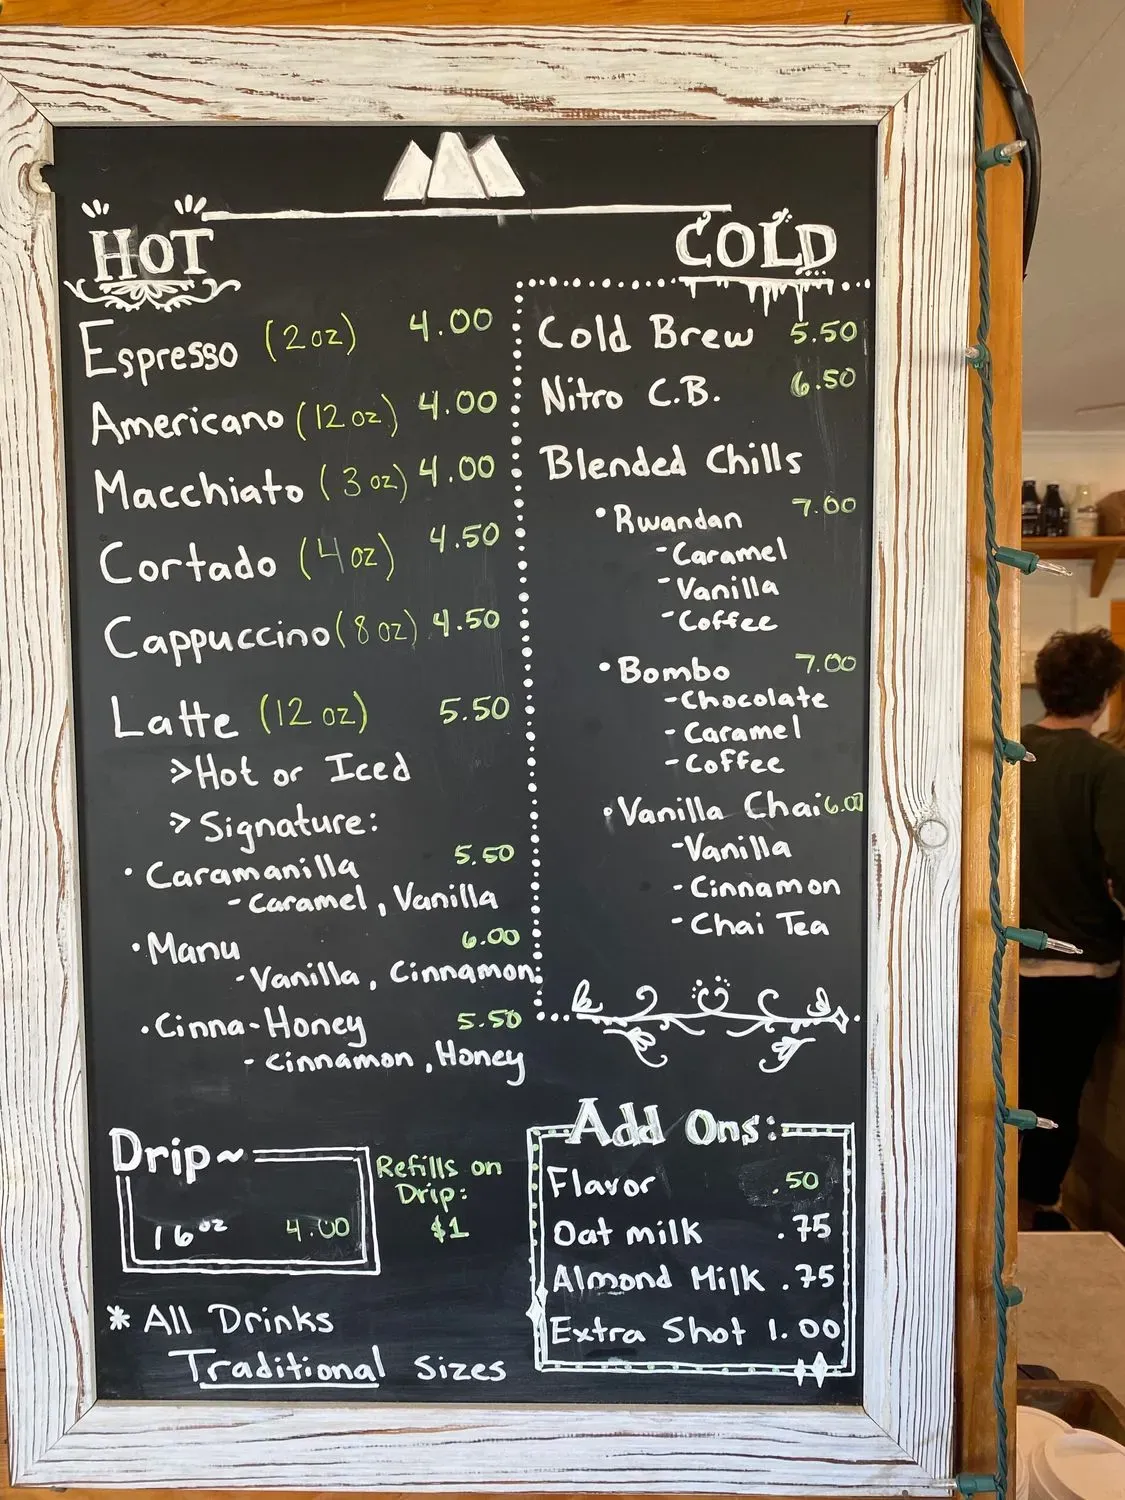 HOT
Espresso (2 oz) 4.00
Americano (12 oz) 4.00
Macchiato (3 oz) 4.00
Cortado (4 oz) 4.50
Cappuccino (8 oz) 4.50
Latte (12 oz) 5.50
>Hot or Iced
> Signature:
• Caramanilla 5.50
- Caramel, Vanilla
• Manu 6.00
- Vanilla, Cinnamon
• Cinna-Honey 5.50
- Cinnamon, Honey
Drip~
16 oz 4.00
Refills on
Drip:
$1
* All Drinks
Traditional Sizes
COLD
Cold Brew 5.50
Nitro C.B. 6.50
Blended Chills
• Rwandan 7.00
- Caramel
- Vanilla
- Coffee
• Bombo 7.00
- Chocolate
- Caramel
- Coffee
• Vanilla Chai 6.00
- Vanilla
- Cinnamon
- Chai Tea
Add Ons:
Flavor .50
Oat milk .75
Almond Milk .75
Extra Shot 1.00